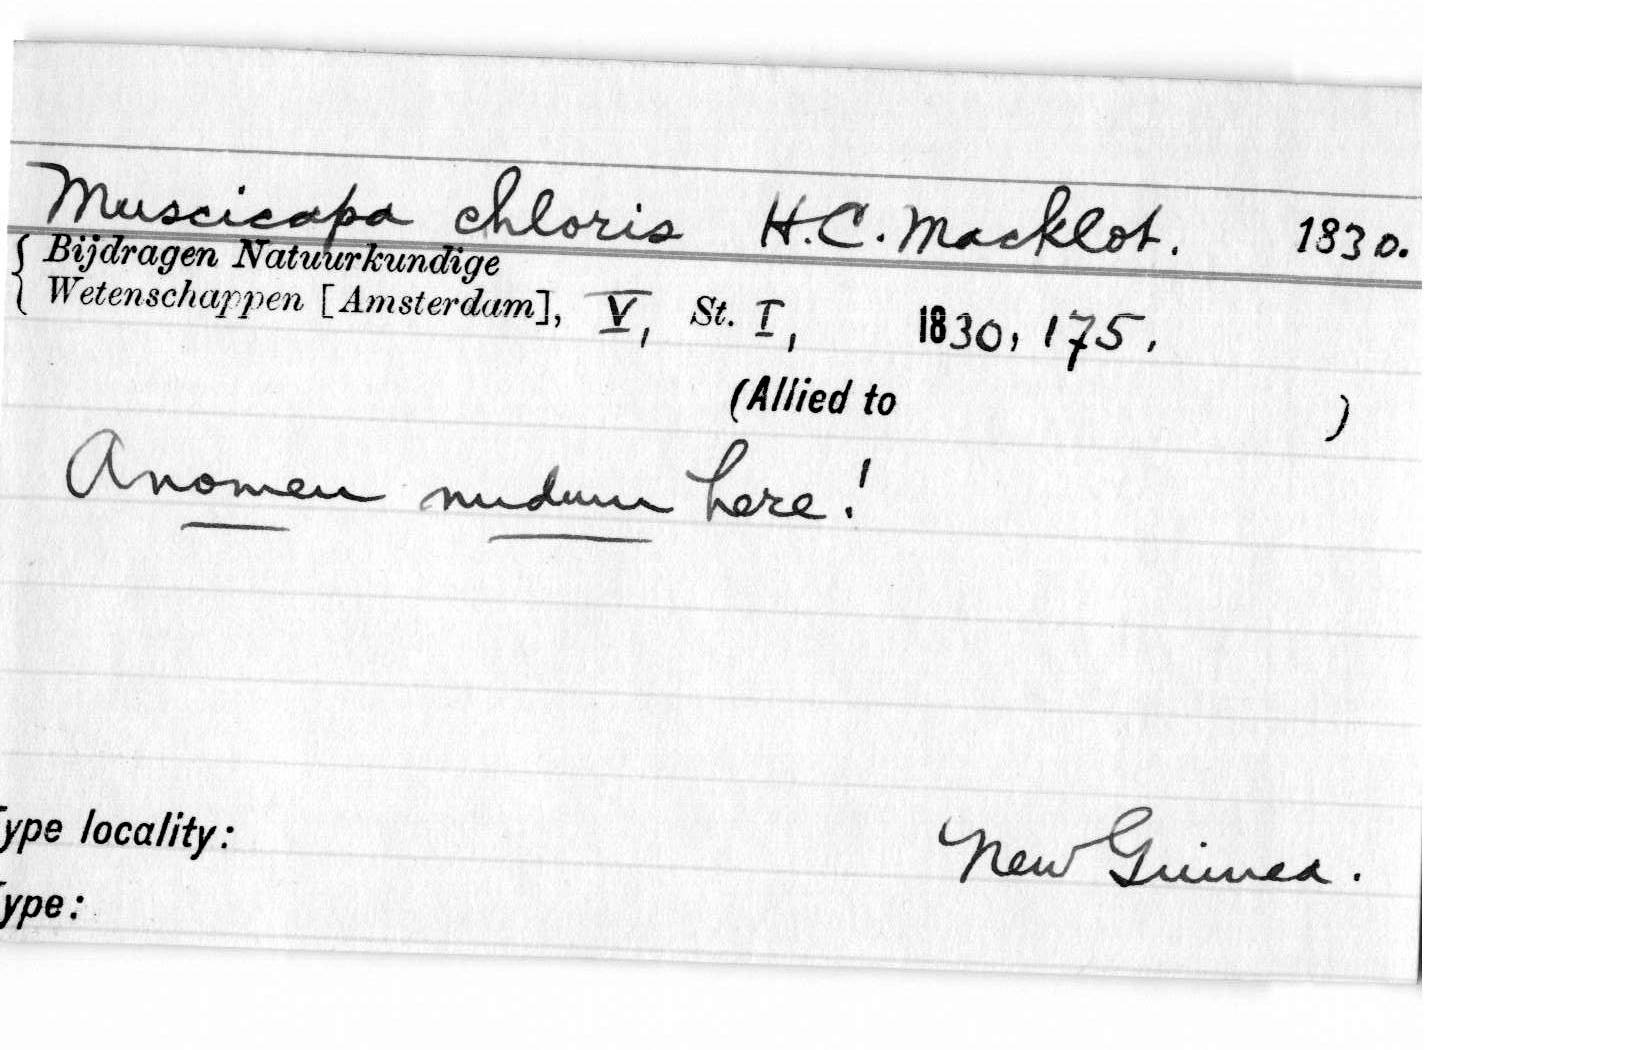 Muscicapa chloris H.C. Macklot. 1830.
{ Bijdragen Natuurkundige
Wetenschappen [Amsterdam], V, St. I, 1830, 175.
(Allied to )
A nomen nudum here!
Type locality: New Guinea.
Type: